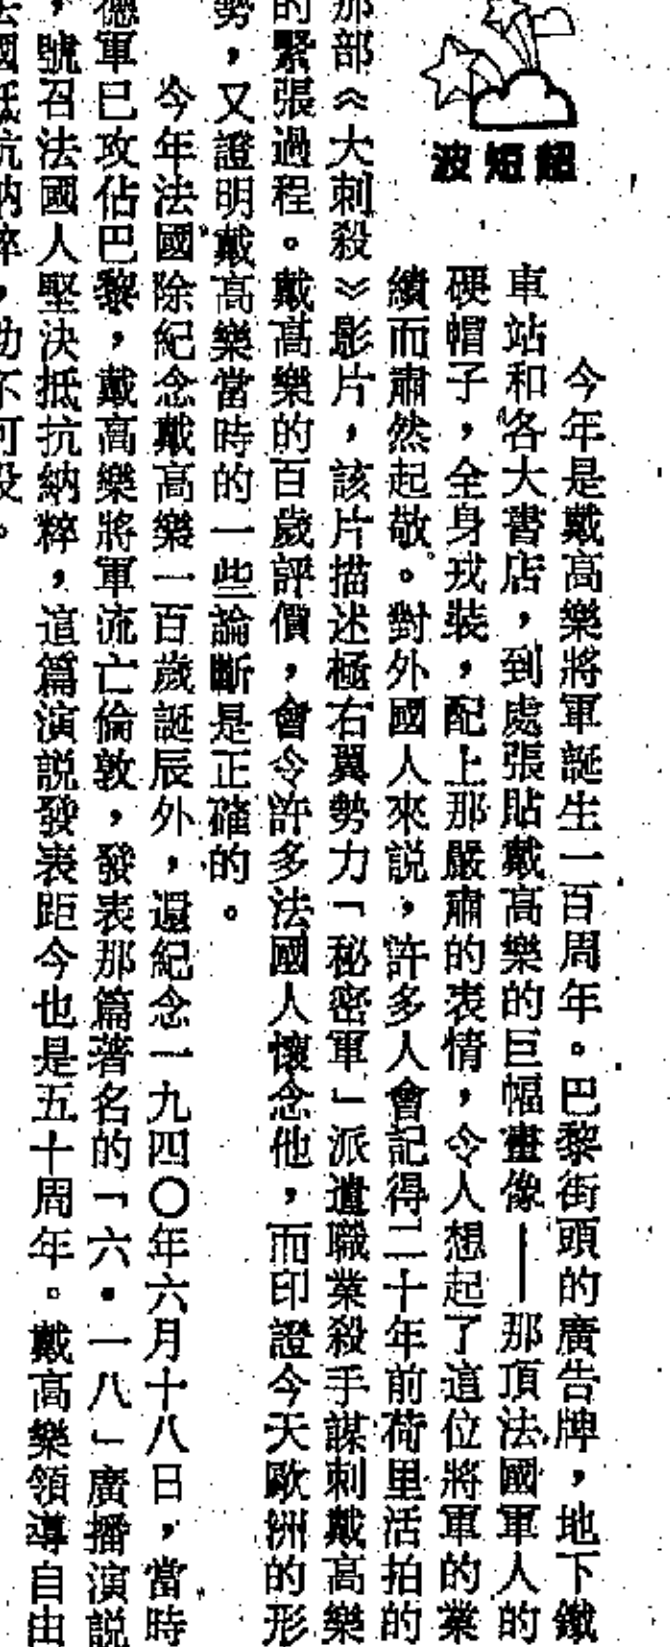 超短波
今年是戴高樂將軍誕生一百周年。巴黎街頭的廣告牌,地下鐵
車站和各大書店,到處張貼戴高樂的巨幅畫像——那頂法國軍人的
硬帽子,全身戎裝,配上那嚴肅的表情,令人想起了這位將軍的業
績而肅然起敬。對外國人來説,許多人會記得二十年前荷里活拍的
那部《大刺殺》影片,該片描述極右翼勢力「秘密軍」派遣職業殺手謀刺戴高樂
的緊張過程。戴高樂的百歲評價,會令許多法國人懷念他,而印證今天歐洲的形
勢,又證明戴高樂當時的一些論斷是正確的。
今年法國除紀念戴高樂一百歲誕辰外,還紀念一九四〇年六月十八日,當時
德軍已攻佔巴黎,戴高樂將軍流亡倫敦,發表那篇著名的「六·一八」廣播演説
,號召法國人堅決抵抗納粹,這篇演説發表距今也是五十周年。戴高樂領導自由
法國抵抗納粹,功不可没。